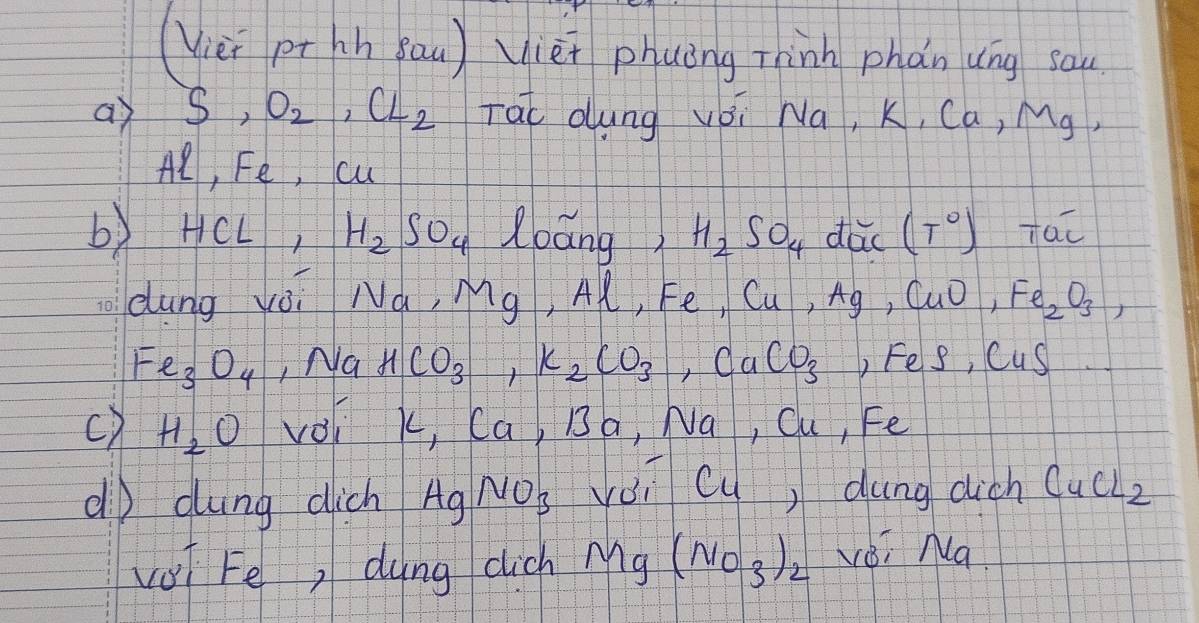 (Viết pt hh sau) Viết phương Trình phản ứng sau.
a) S, O2, CL2 Tác dụng với Na, K, Ca, Mg,
Al, Fe, Cu
b) HCL, H2SO4 loãng, H2SO4 đặc (T°) Tác
dụng với Na, Mg, Al, Fe, Cu, Ag, CuO, Fe2O3,
Fe3O4, NaHCO3, K2CO3, CaCO3, FeS, CuS
c) H2O với K, Ca, Ba, Na, Cu, Fe
d) dung dịch AgNO3 với Cu, dung dịch CuCL2
với Fe, dung dịch Mg(NO3)2 với Na.